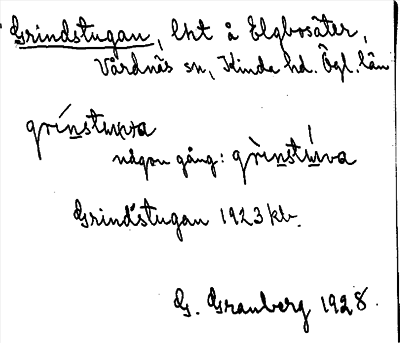 Grindstugan, lht å Elgbosäter,
Vårdnäs sn, Kinda hd. Ögl. län
grínstuva
någon gång: grìnstúva
Grindstugan 1923 kb.
G. Granberg 1928.